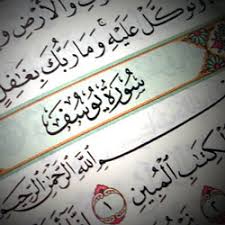 وَٱلْأَرْضِ و
وَتَوَكَّلْ عَلَيْهِ وَمَا رَبُّكَ بِغَـٰفِلٍ
سُورَةُ يُوسُفَ
بِسْمِ ٱللَّهِ ٱلرَّحْمَـٰنِ ٱلرَّحِيمِ
ٱلْكِتَـٰبِ ٱلْمُبِينِ ١ إِنَّآ
٢